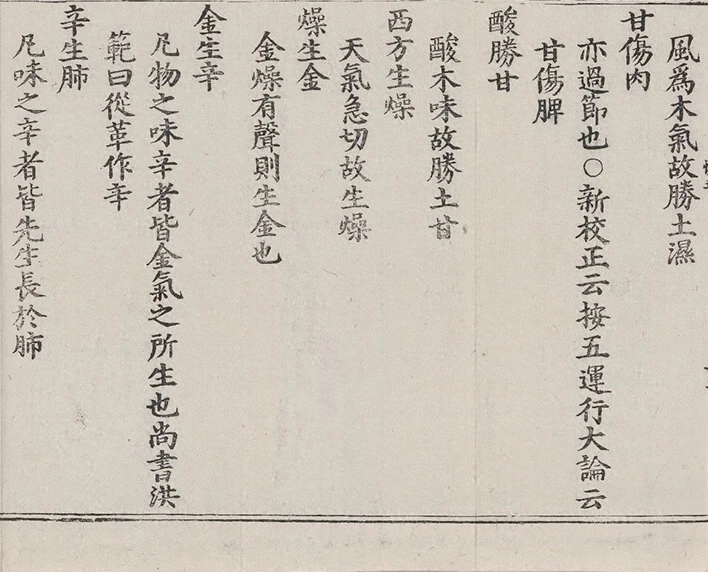 風爲木氣故勝土濕
甘傷肉
亦過節也○新校正云按五運行大論云
甘傷脾
酸勝甘
酸木味故勝土甘
西方生燥
天氣急切故生燥
燥生金
金燥有聲則生金也
金生辛
凡物之味辛者皆金氣之所生也尚書洪
範曰從革作辛
辛生肺
凡味之辛者皆先生長於肺